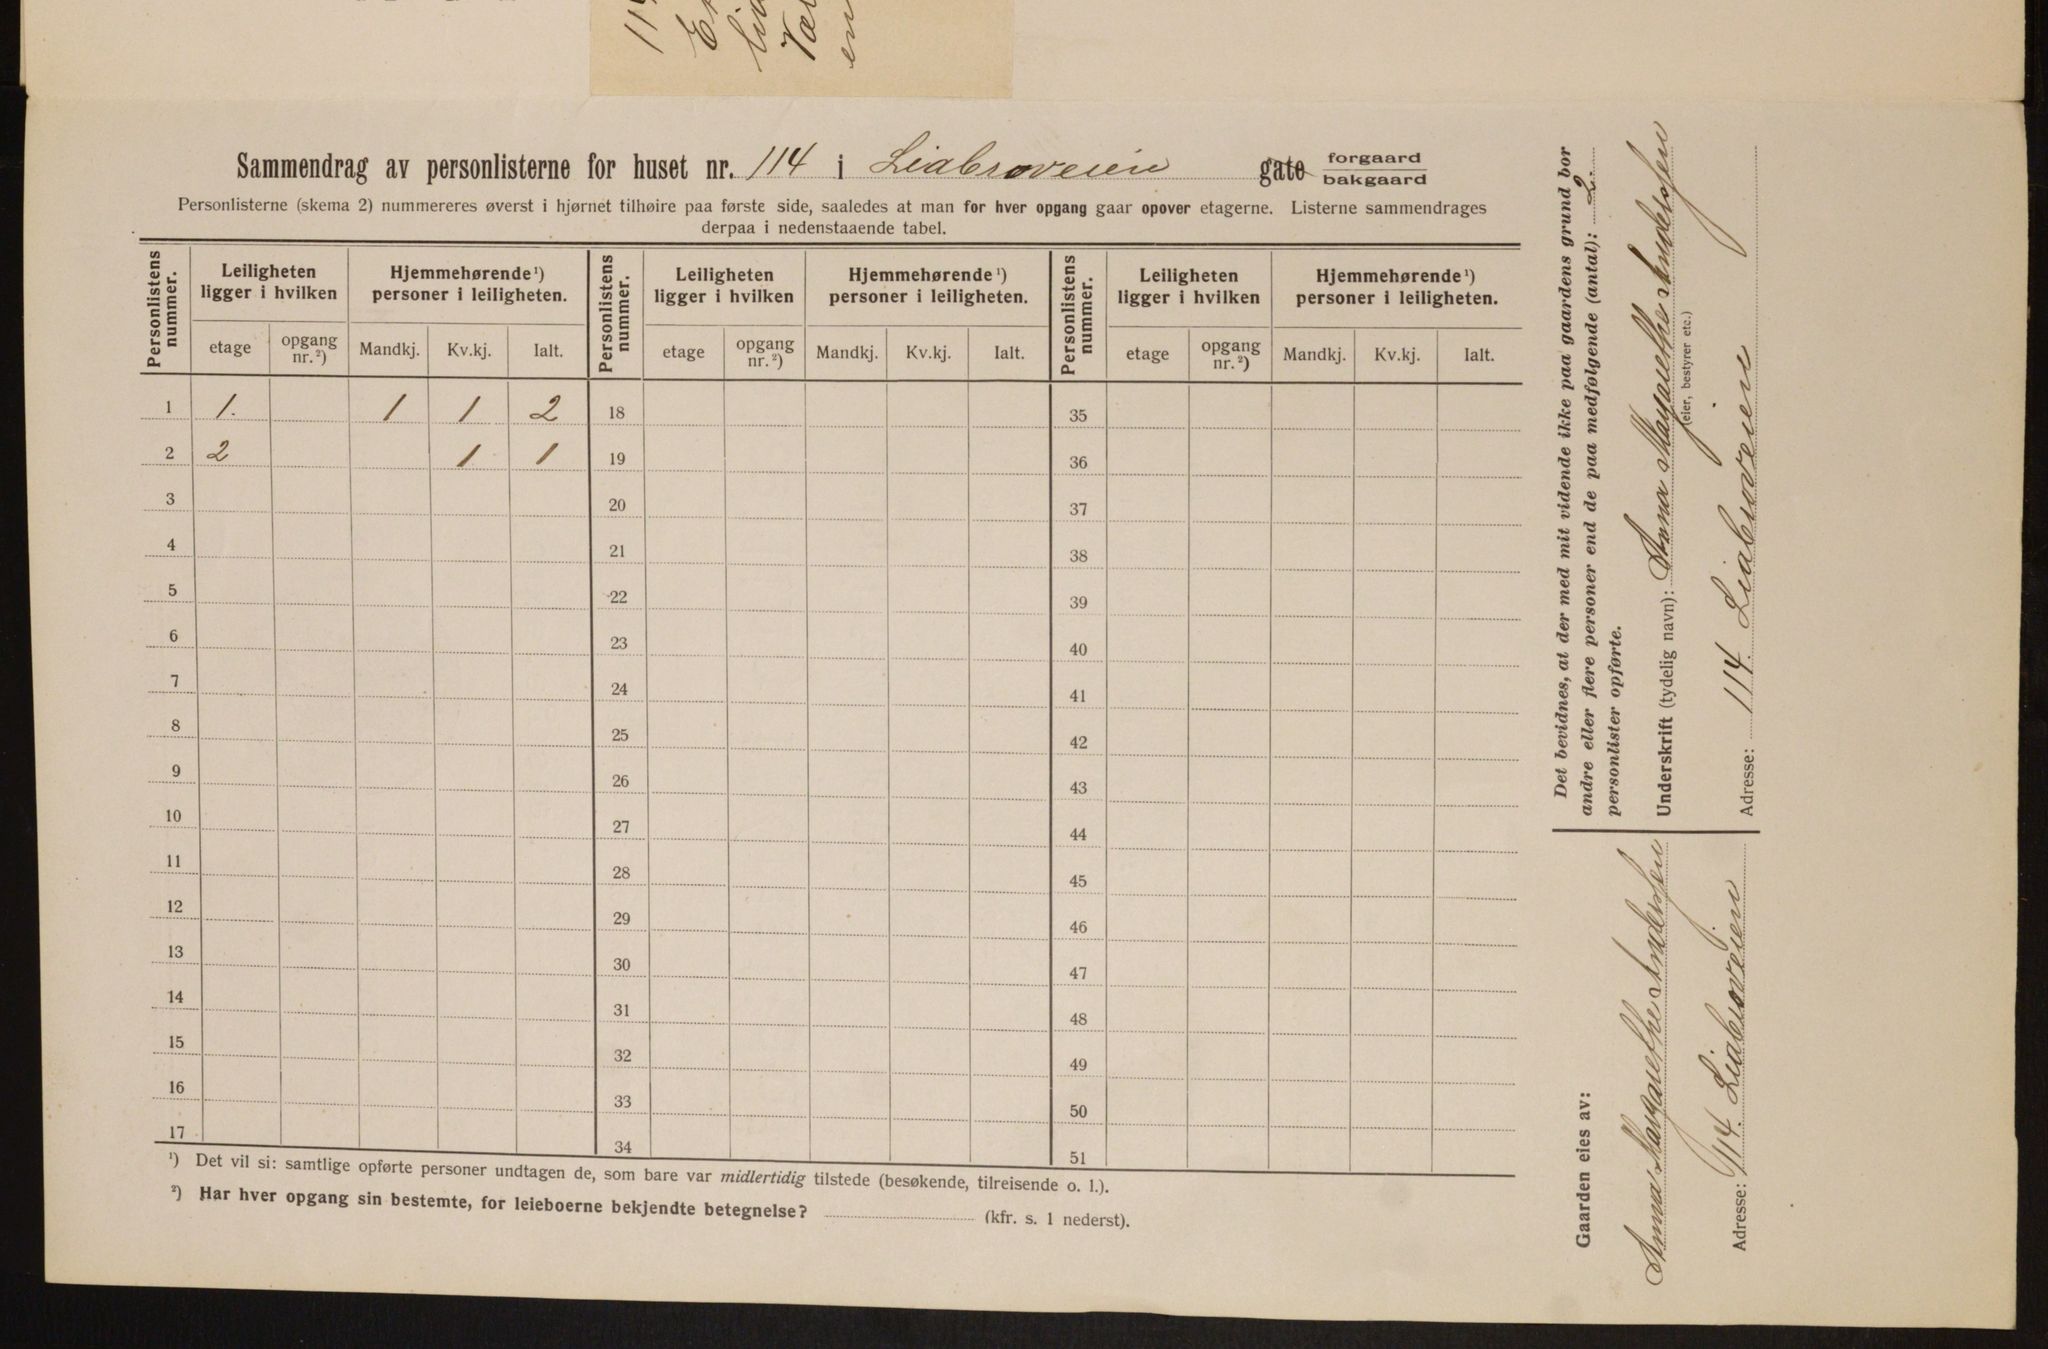 Sammendrag av personlisterne for huset nr. 114 i Liabroveien gate forgaard bakgaard
Personlisterne (skema 2) nummereres øverst i hjørnet tilhøire paa første side, saaledes at man for hver opgang gaar opover etagerne. Listerne sammendrages
derpaa i nedenstaaende tabel.
Personlistens nummer. Leiligheten ligger i hvilken Hjemmehørende¹) personer i leiligheten. Personlistens nummer. Leiligheten ligger i hvilken Hjemmehørende¹) personer i leiligheten. Personlistens nummer. Leiligheten ligger i hvilken Hjemmehørende¹) personer i leiligheten.
etage opgang nr.²) Mandkj. Kv.kj. Ialt. etage opgang nr.²) Mandkj. Kv.kj. Ialt. etage opgang nr.²) Mandkj. Kv.kj. Ialt.
1 1. 1 1 2 18 35
2 2 1 1 19 36
3 20 37
4 21 38
5 22 39
6 23 40
7 24 41
8 25 42
9 26 43
10 27 44
11 28 45
12 29 46
13 30 47
14 31 48
15 32 49
16 33 50
17 34 51
¹) Det vil si: samtlige opførte personer undtagen de, som bare var midlertidig tilstede (besøkende, tilreisende o. l.).
²) Har hver opgang sin bestemte, for leieboerne bekjendte betegnelse? (kfr. s. 1 nederst).
Det bevidnes, at der med mit vidende ikke paa gaardens grund bor
andre eller flere personer end de paa medfølgende (antal): 2
personlister opførte.
Underskrift (tydelig navn): Anna Margarethe Anderssen
(eier, bestyrer etc.)
Adresse: 114 Liabroveien
Gaarden eies av:
Anna Margarethe Anderssen
Adresse: 114. Liabroveien